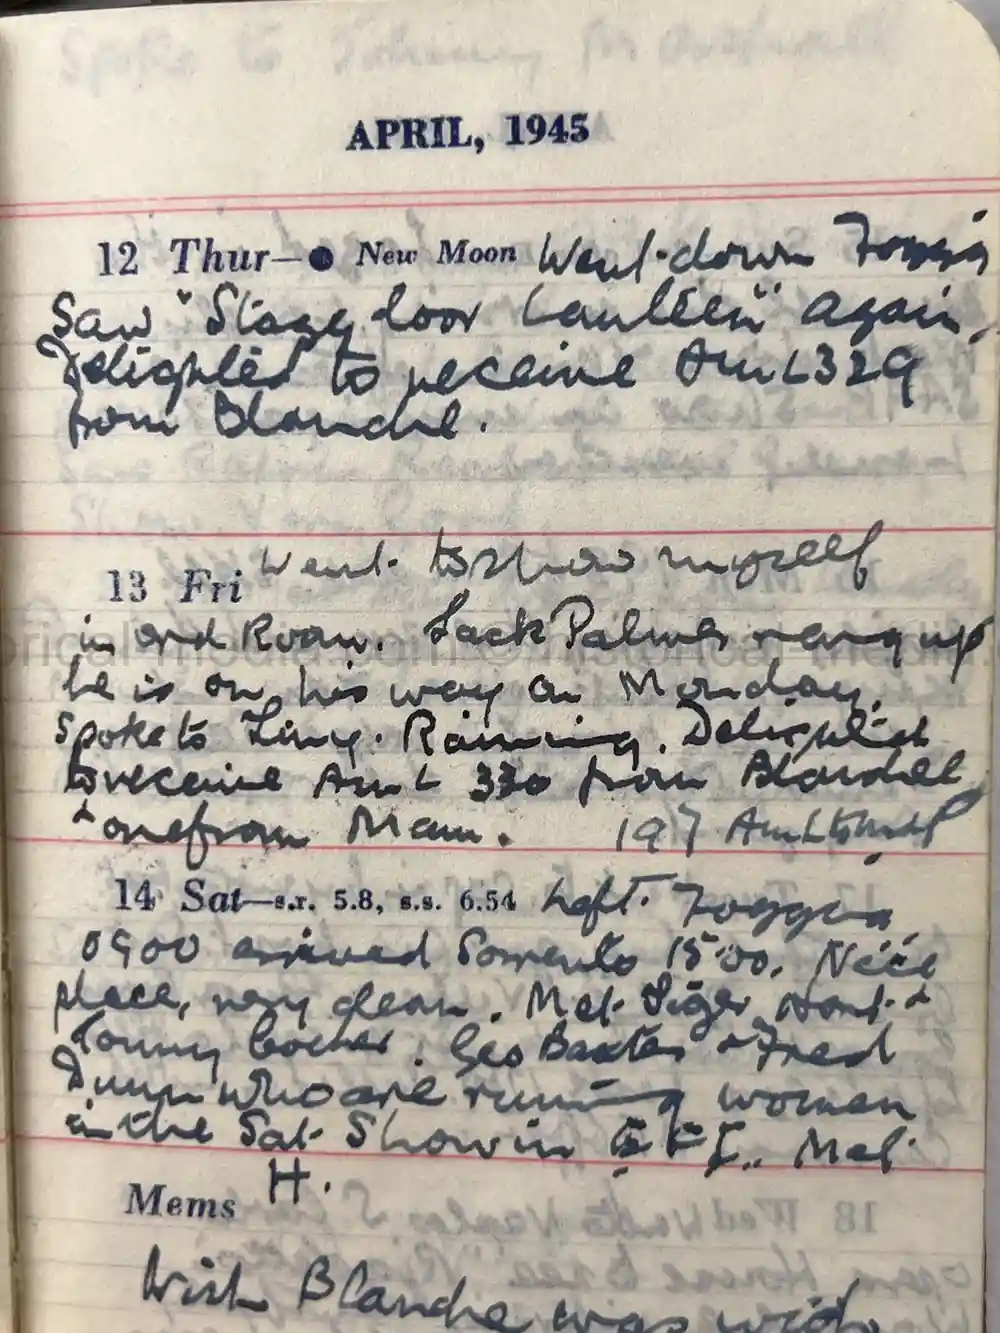 APRIL, 1945
12 Thur—● New Moon Went down Foggia
Saw "Stage door Canteen" again.
Delighted to receive AmL 329
from Blanche.
13 Fri Went to show myself
in ord Room. Jack Palmer rang up
he is on his way on Monday.
Spoke to . Raining. Delighted
to receive AmL 330 from Blanche
+ one from Mam. 197 AmL to
14 Sat—s.r. 5.8, s.s. 6.54 Left Foggia
0900 arrived Sorrento 15.00. Nice
place, very clean. Met Tiger +
Tommy . Geo Baxter + Fred
Dunn who are running women
in the Sat Show in E F I. Met
H.
Mems
Wish Blanche was with